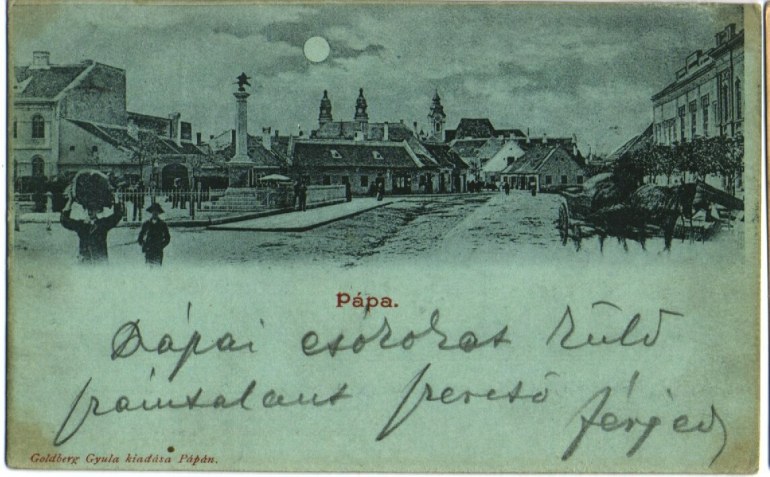 Pápa.
Pápai csókokat küld
számtalant szerető férjed
Goldberg Gyula kiadása Pápán.